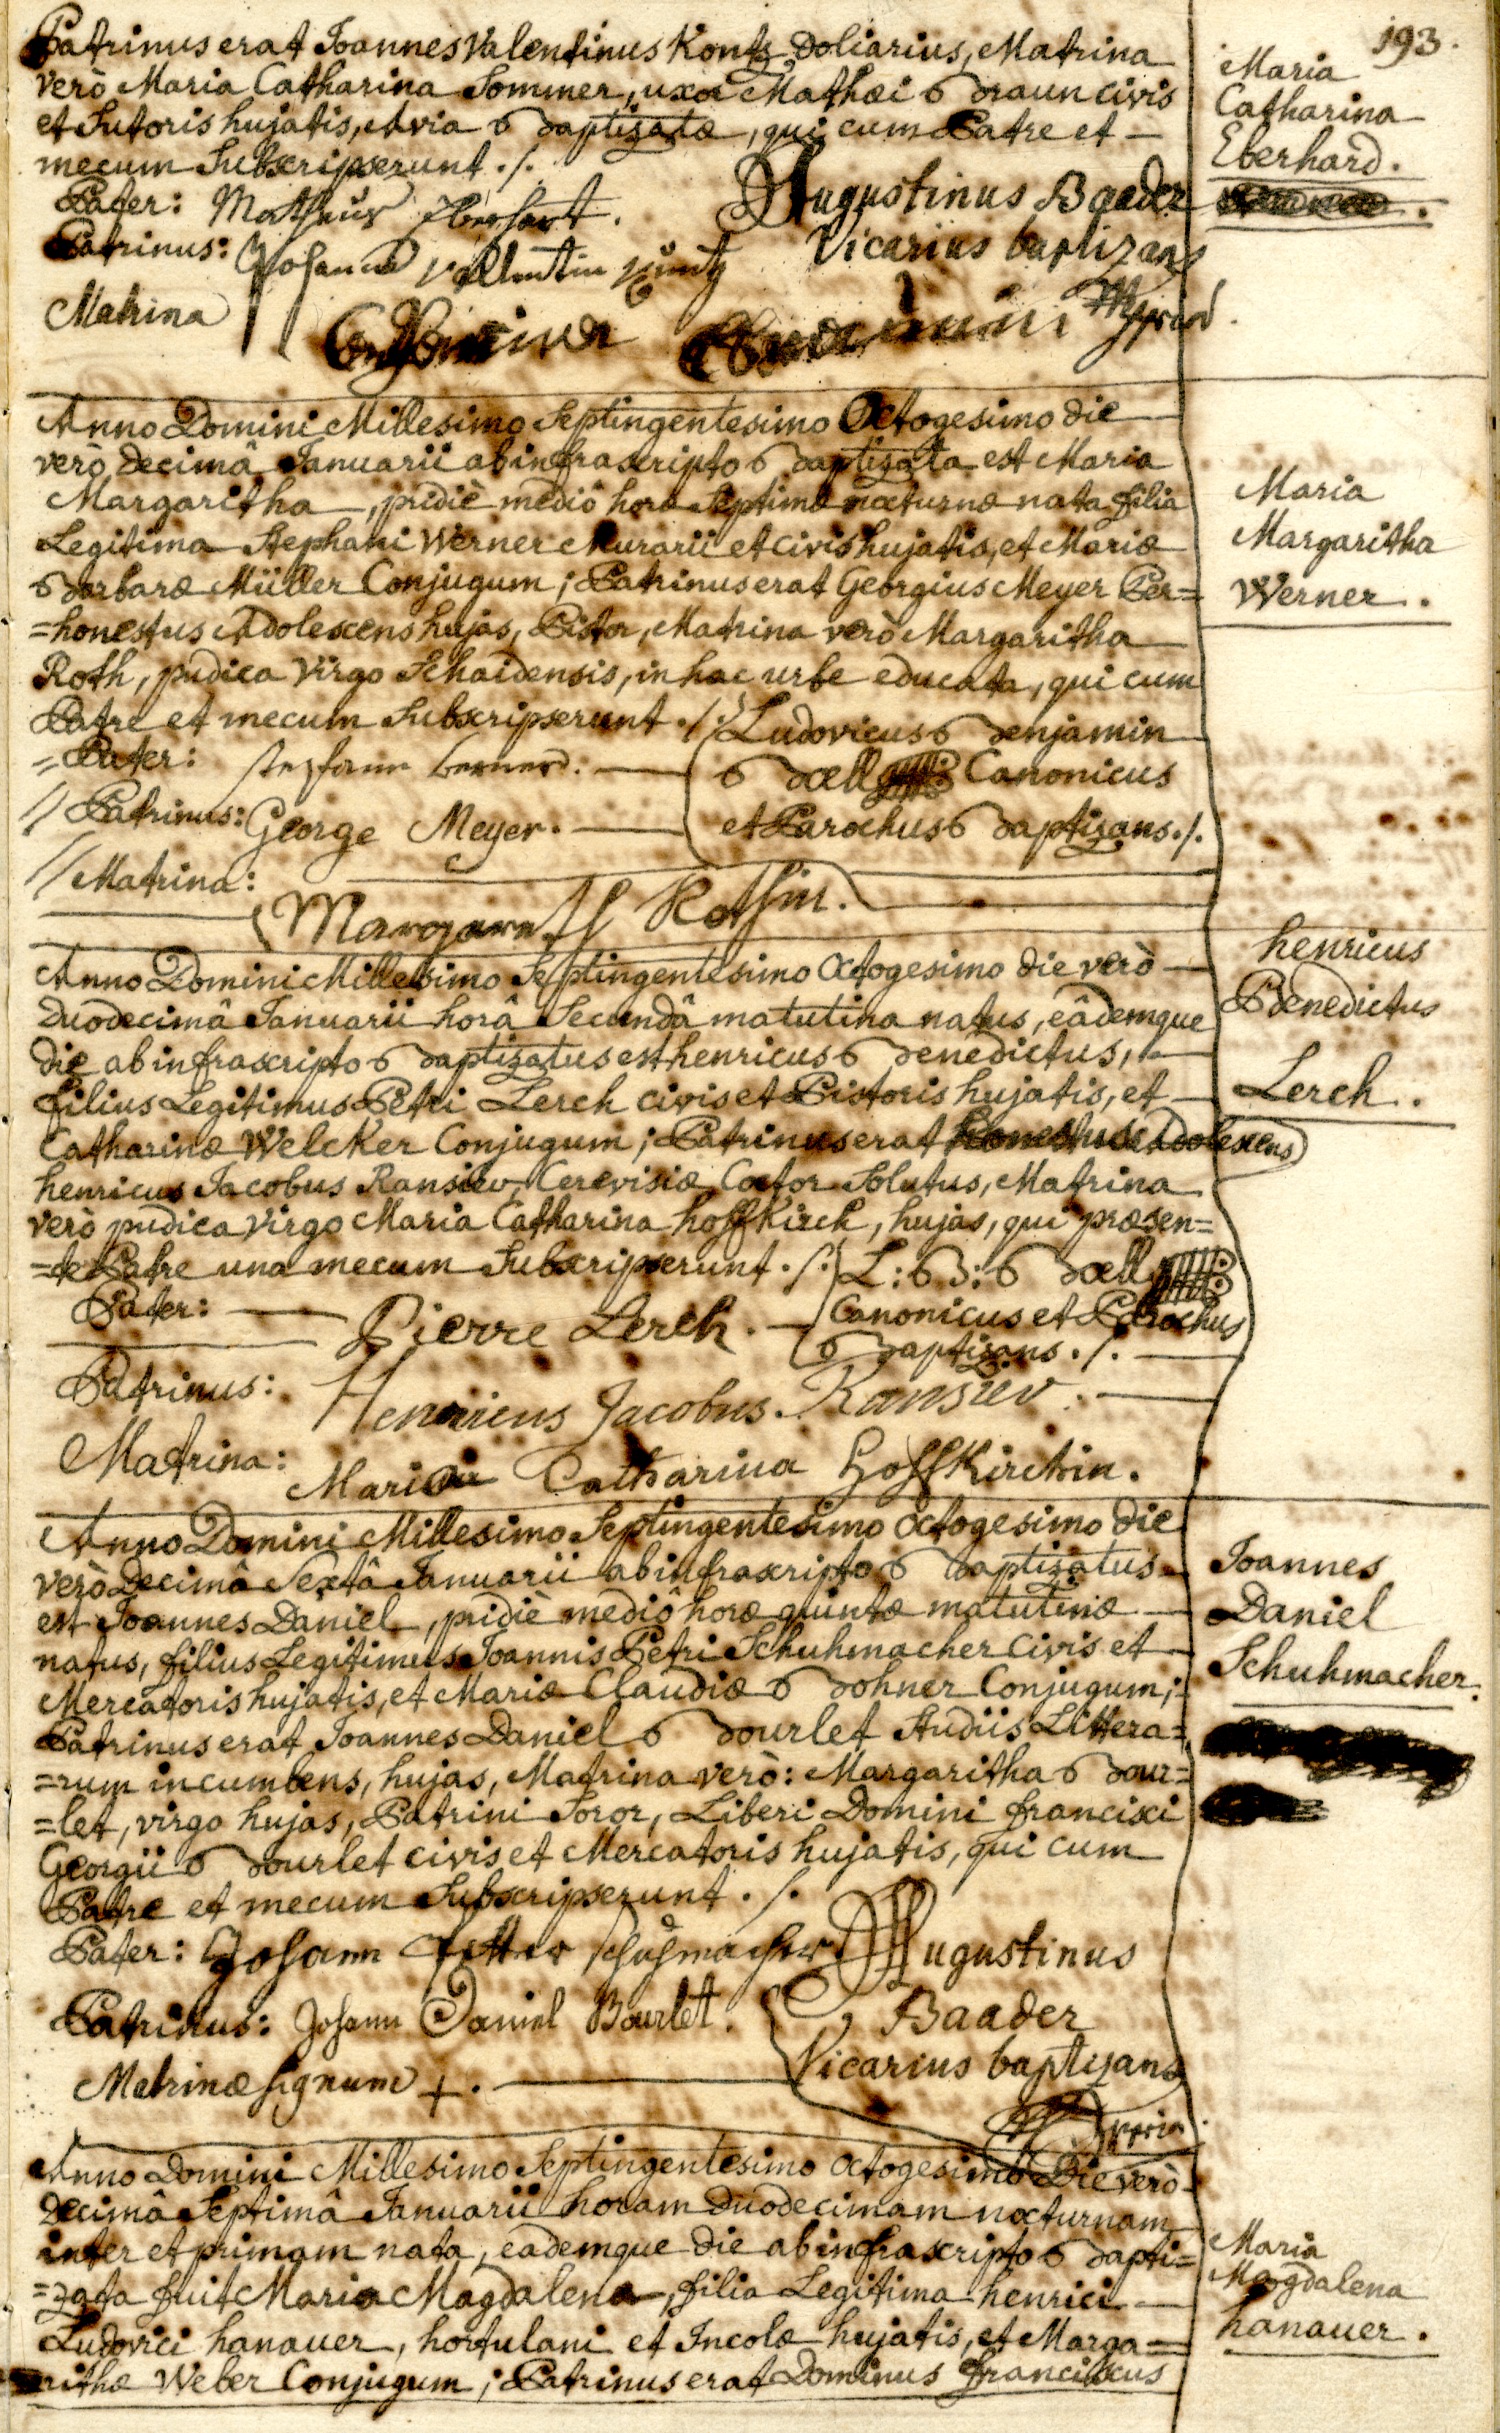 193.
Patrinus erat Joannes Valentinus Kontz Doliarius, Matrina
verò Maria Catharina Sommer, uxor Mathæi Braun civis
et Sutoris hujatis, et via Baptizatæ, qui cum Patre et —
mecum Subscripserunt ./.
Maria
Catharina
Eberhard.
Pater: Mathaus Eberhart.
Augustinus Baader
Patrinus: Johannes Vallentin
Vicarius baptizans
Matrina
Anno Domini Millesimo Septingentesimo Octogesimo die
verò decimâ Januarii ab infrascripto Baptizata est Maria
Margaritha, pridiè mediô horæ Septimæ nocturnæ nata filia
Legitima Stephani Werner Murarii et civis hujatis, et Mariæ
Barbaræ Müller Conjugum; Patrinus erat Georgius Meyer Per=
=honestus Adolescens hujas, Pistor, Matrina verò Margaritha
Roth, pudica Virgo Schaidensis, in hac urbe educata, qui cum
Patre et mecum Subscripserunt ./.
Maria
Margaritha
Werner.
Ludovicus Benjamin
Bœll Canonicus
et Parochus Baptizans ./.
Pater:
Patrinus: George Meyer.
Matrina: Margareth Rothin.
Anno Domini Millesimo Septingentesimo Octogesimo die verò —
Duodecimâ Januarii horâ Secundâ matutina natus, eâdemque
die ab infrascripto Baptizatus est henricus Benedictus,
filius Legitimus Petri Lerch civis et Pistoris hujatis, et
Catharinæ Welcker Conjugum; Patrinus erat honestus Adolescens
henricus Jacobus Ransiev, Cerevisiæ Coctor Solutus, Matrina
verò pudica virgo Maria Catharina hoffkirch, hujas, qui præsen=
=te Patre una mecum Subscripserunt ./.
henricus
Benedictus
Lerch.
L: B: Bœll
Canonicus et Parochus
Baptizans ./.
Pater: Pierre Lerch.
Patrinus: Henricus Jacobus Ransiev.
Matrina: Maria Catharina Hoffkirchin.
Anno Domini Millesimo Septingentesimo Octogesimo die
verò Decimâ Sextâ Januarii ab infrascripto Baptizatus
est Joannes Daniel, pridiè mediô horæ quintæ matutinæ —
natus, filius Legitimus Joannis Petri Schuhmacher Civis et
Mercatoris hujatis, et Mariæ Claudiæ Bohner Conjugum;
Patrinus erat Joannes Daniel Bourlet Studiis Littera=
=rum incumbens, hujas, Matrina verò: Margaritha Bour=
=let, virgo hujas, Patrini Soror, Liberi Domini francisci
Georgii Bourlet civis et Mercatoris hujatis, qui cum
Patre et mecum Subscripserunt ./.
Joannes
Daniel
Schuhmacher.
Pater: Johann Petter Schuhmacher
Augustinus
Baader
Vicarius baptizans
Patrinus: Johann Daniel Bourlet.
Matrinæ signum +.
Anno Domini Millesimo Septingentesimo Octogesimo Die verò
Decimâ Septimâ Januarii horam Duodecimam nocturnam
inter et primam nata, eademque die ab infrascripto Bapti=
=zata fuit Maria Magdalena, filia Legitima henrici —
Ludovici hanauer, hortulani et Incolæ hujatis, et Marga=
=rithæ Weber Conjugum; Patrinus erat Dominus franciscus
Maria
Magdalena
hanauer.